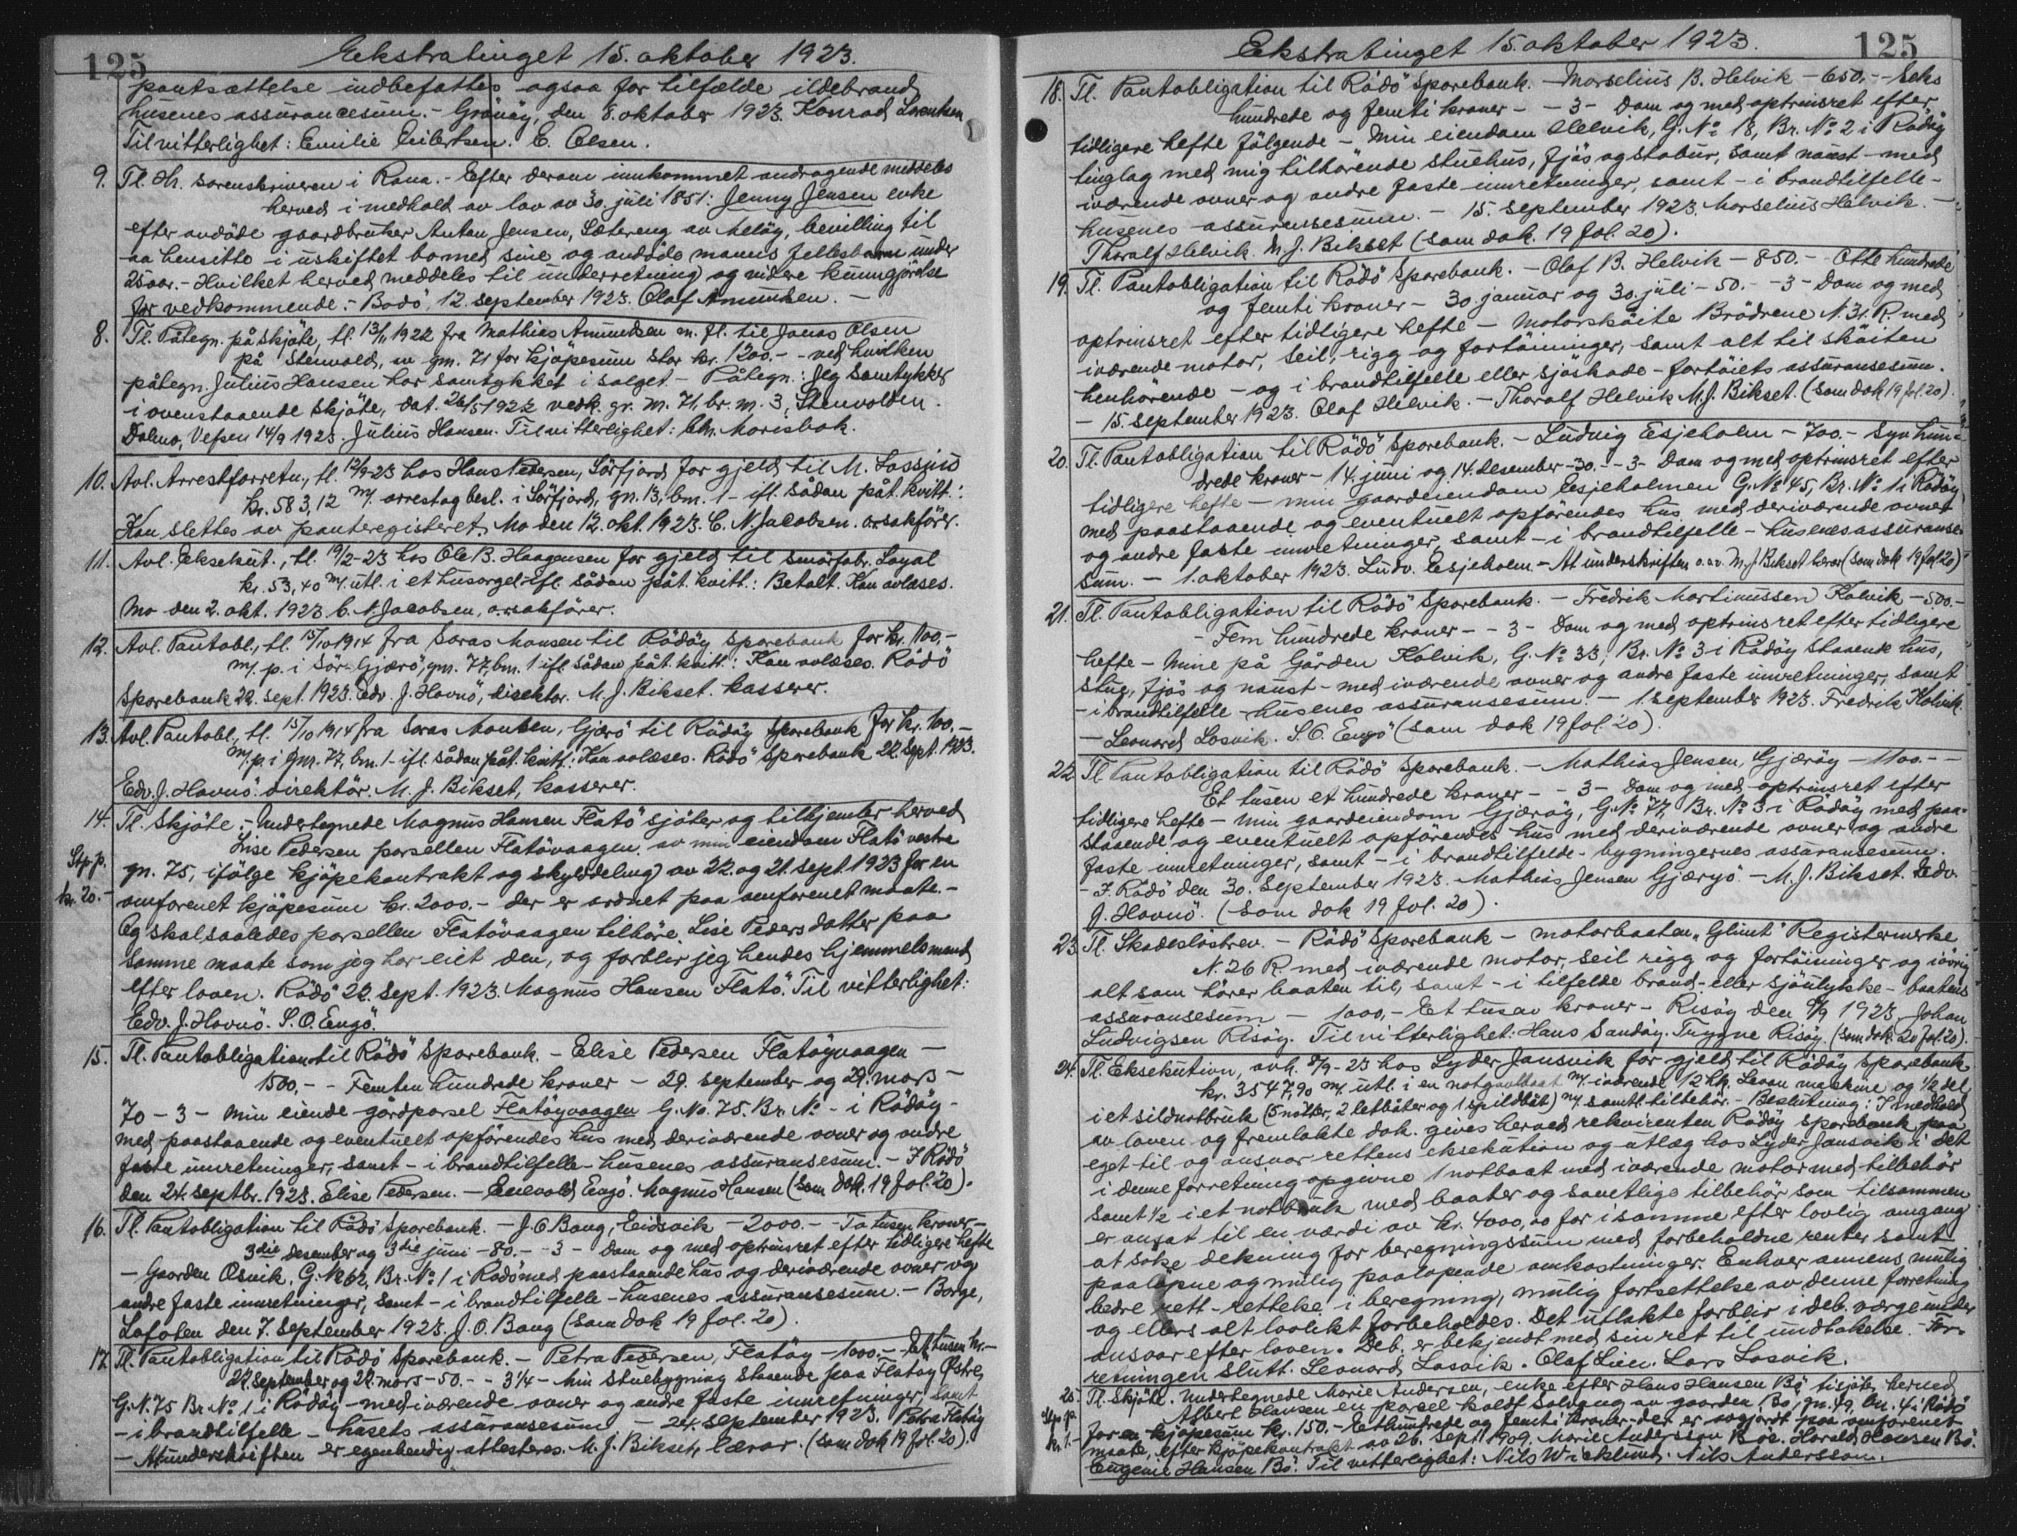 125
Ekstratinget 15. oktober 1923.
pantsættelse indbefattes ogsaa for tilfælde ildebrand
husenes assurancesum. - Grönöy, den 8. oktober 1923. Konrad Lorentsen
Til vitterlighet: Emilie Eilertsen. E. Olsen.
9. Tl. Hr. sorenskriveren i Rana. - Efter derom innkommet andragende meddeles
herved i medhold av lov av 30. juli 1851: Jenny Jensen enke
efter avdöde gaardbruker Anton Jensen, Sætereng av Melöy, bevilling til
aa hensitte i uskiftet bo med sine og avdöde manns fellesbarn under
25 aar. - Hvilket herved meddeles til underretning og videre kunngjörelse
for vedkommende. - Bodö, 12. september 1923. Olaf Amundsen. -
8. Tl. Påtegn. på skjöte, tl. 13/11 1922 fra Mathias Amundsen m. fl. til Jonas Olsen
på Stenvold, av gnr. 71 for kjöpesum stor kr. 1200.- ved hvilken
påtegn. Julius Hansen har samtykket i salget. - Påtegn.: Jeg samtykker
i ovenstaaende skjöte, dat. 26/5 1922 vedk. gr. nr. 71, br. nr. 3, Stenvolden.
Dolmo, Vefsen 14/9 1923. Julius Hansen. Til vitterlighet: Chr. Morisbak.
10. Avl. Arrestforretn., tl. 12/9-23 hos Hans Pedersen, Sörfjord for gjeld til M. Lossius
kr. 583,12 m/ arrest og besl. i Sörfjord, gn. 13, bm. 1 - ifl. sådan påt. kvitt.:
Kan slettes av panteregisteret. Mo den 12. okt. 1923. C. N. Jacobsen. o.rsakförer.
11. Avl. Eksekut., tl. 19/2-23 hos Ole B. Haagensen for gjeld til smörfabr. Loyal
kr. 53,40 m/ utl. i et husorgel - ifl. sådan påt. kvitt.: Betalt. Kan avlæses.
Mo den 2. okt. 1923. C. N. Jacobsen, o.rsakförer.
12. Avl. Pantobl., tl. 15/10 1914 fra Soras Monsen til Rödöy Sparebank for kr. 100,-
m/ p. i Sör-Gjærö, gnr. 77, bm. 1 ifl. sådan påt. kvitt.: Kan avlæses. Rödö
Sparebank 22. sept. 1923. Edv. J. Havnö, direktör. M. J. Bikset. kasserer.
13. Avl. Pantobl., tl. 15/10 1914 fra Soras Monsen, Gjærö til Rödöy Sparebank for kr. 100,-
m/ p. i gnr. 77, bm. 1 - ifl. sådan påt. kvitt.: Kan avlæses. Rödö Sparebank 22. sept. 1923.
Edv. J. Havnö. direktör. M. J. Bikset, kasserer.
14. Tl. Skjöte. - Undertegnede Magnus Hansen Flatö sjöter og tilhjemler herved
Lise Pedersen parsellen Flatövaagen av min eiendom Flatö vestre
Stp. p. gn. 75, ifölge kjöpekontrakt og skylddeling av 22. og 21. sept. 1923 for en
kr. 20.- omforenet kjöpesum kr. 2000.- der er ordnet paa omforenet maate. -
Og skal saaledes parsellen Flatövaagen tilhöre Lise Pedersdatter paa
samme maate som jeg har eiet den, og forblir jeg hendes hjemmelsmand
efter loven. Rödö 22. sept. 1923. Magnus Hansen Flatö. Til vitterlighet:
Edv. J. Havnö. S. O. Engö.
15. Tl. Pantobligation til Rödö Sparebank. - Elise Pedersen Flatöyvaagen -
1500,- - Femten hundrede kroner - 29. september og 29. mars -
70 - 3 - Min eiende gårdparsel Flatöyvaagen G. No. 75. Br. No - i Rödöy -
med paastaaende og eventuelt opförendes hus med deriværende ovner og andre
faste innretninger, samt - i brandtilfelle - husenes assuransesum. - I Rödö
den 24. septbr. 1923. Elise Pedersen. - Enevold Engö. Magnus Hansen (som dok. 19 fol. 20).
16. Tl. Pantobligation til Rödö Sparebank. - J. O. Bang, Eidsvik - 2000.- - To tusen kroner -
3die desember og 3die juni - 80. - - 3 - Dom og med optrinsret efter tidligere hefte
- Gaarden Øsvik, G. No 62, Br. No 1 i Rödö med paastaaende hus og deriværende ovner og
andre faste innretninger, samt - i brandtilfelle - husenes assuransesum. - Borge,
Lofoten den 7. september 1923. J. O. Bang (som dok 19 fol. 20).
17. Tl. Pantobligation til Rödö Sparebank. - Petra Pedersen, Flatöy - 1000,- - Ett tusen kr. -
29. september og 29. mars - 50. - - 3 1/4 - Min stuebygning staaende paa Flatöy Østre
G. N. 75 Br. No. 1 i Rödöy - med iværende ovner og andre faste innretninger, samt
- i brandtilfelle - husets assuransesum - 24. september 1923. Petra Flatöy
- At underskriften er egenhendig attesteres. M. J. Bikset, lærer. (som dok 19 fol. 20).
Ekstratinget 15. oktober 1923.
125
18. Tl. Pantobligation til Rödö Sparebank. - Marselius B. Helvik - 650,- - Seks
hundrede og femti kroner - - 3 - Dom og med optrinsret efter
tidligere hefte fölgende - Min eiendom Helvik, G. No 18, Br. No 2 i Rödöy
tinglag med mig tilhörende stuehus, fjös og stabur, samt naust - med
iværende ovner og andre faste innretninger, samt - i brandtilfelle -
husenes assuransesum. - 15. september 1923. Marselius Helvik. -
Thoralf Helvik. M. J. Bikset (som dok. 19 fol. 20).
19. Tl. Pantobligation til Rödö Sparebank. - Olaf B. Helvik - 850.- - Otte hundrede
og femti kroner - 30. januar og 30. juli - 50. - - 3 - Dom og med
optrinsret efter tidligere hefte - Motorsköite Brödrene N. 31. R. med
iværende motor, seil, rigg og fortöininger, samt alt til sköiten
henhörende - og i brandtilfelle eller sjöskade - fartöiets assuransesum.
- 15. september 1923. Olaf Helvik. - Thoralf Helvik M. J. Bikset. (som dok 19 fol. 20).
20. Tl. Pantobligation til Rödö Sparebank. - Ludvig Esjeholm - 700.- Syv hun-
drede kroner - 14. juni og 14. desember - 30. - - 3 - Dom og med optrinsret efter
tidligere hefte - min gaardeiendom Esjeholmen G. No 45, Br. No 1 i Rödöy
med paastaaende og eventuelt opförendes hus med deriværende ovner
og andre faste innretninger, samt - i brandtilfelle - husenes assuranse-
sum. - 1. oktober 1923. Ludv. Esjeholm. - At underskriften o.s.v. M. J. Bikset lærer (som dok 19 fol. 20)
21. Tl. Pantobligation til Rödö Sparebank. - Fredrik Martinussen Kolvik - 500.-
- Fem hundrede kroner - - 3 - Dom og med optrinsret efter tidligere
hefte - Mine på Gården Kolvik, G. No 33, Br. No 3 i Rödöy staaende hus,
stue, fjös og naust - med iværende ovner og andre faste innretninger, samt
- i brandtilfelle - husenes assuransesum. - 1. september 1923. Fredrik Kolvik.
- Leonard Losvik. S. O. Engö (som dok 19 fol. 20)
22. Tl. Pantobligation til Rödö Sparebank. - Mathias Jensen, Gjæröy - 1100.- -
Et tusen et hundrede kroner - - 3 - Dom og med optrinsret efter
tidligere hefte - Min gaardeiendom Gjæröy, G. No 77, Br. No 3 i Rödöy med paa-
staaende og eventuelt opförendes hus med deriværende ovner og andre
faste innretninger, samt - i brandtilfelde - bygningernes assuransesum.
- I Rödö den 30. september 1923. Mathias Jensen Gjæryö - M. J. Bikset. Edv.
J. Havnö. (som dok 19 fol. 20).
23. Tl. Skadeslösbrev. - Rödö Sparebank - motorbaaten "Glimt" Registermerke
N. 26 R. med iværende motor, seil rigg og fortöininger og iövrig
alt som hörer baaten til, samt - i tilfelde brand- eller sjöulykke - baatens
assuransesum - 1000,- Et tusen kroner - Risöy den 8/9 1923 Johan
Ludvigsen Risöy. Til vitterlighet: Hans Sandöy. Trygve Risöy. (som dok. 20 fol. 20).
24. Tl. Eksekution, avh. 8/9-23 hos Lyder Jansvik for gjeld til Rödöy Sparebank
kr. 3547,90 m/ utl. i en notgavlbaat m/ iværende 12 hk. Sevan maskine og 1/2 del
i et sildnotbruk (5 nötter, 2 letbåter og 1 spildbåt) m/ samtl. tilbehör. - Beslutning: I medhold
av loven og fremlakte dok. gives herved rekvirenten Rödöy Sparebank paa
eget til og ansvar rettens eksekution og utlæg hos Lyder Jansvik i det
i denne forretning opgivne 1 notbaat med iværende motor med tilbehör
samt 1/2 i et notbruk med baater og samtlige tilbehör som tilsammen
er ansat til en værdi av kr. 4000,00 for i samme efter lovlig omgang
at söke dekning for beregningssum med forbeholdne renter samt
paalöpne og mulig paalöpende omkostninger. Enhver annens mulig
bedre rett - rettelse i beregning, mulig fortsettelse av denne forretning
og ellers alt lovlikt forbeholdes. Det utlakte forblir i deb. værge under
ansvar efter loven. Deb. er bekjendt med sin ret til undtakelse. - For-
retningen slutt. Leonard Losvik. Olaf Lien. Lars Losvik.
25. Tl. Skjöte. Undertegnede Marie Andersen, enke efter Hans Hansen Bö tilsjöte herved
Stp. p. Albert Hansen en parsel kaldt Solvang av gaarden Bö, gn. 49, bn. 4 i Rödö
kr. 1.- for en kjöpesum kr. 150.- Et hundrede og femti kroner - der er avgjort paa omforenet
maate, efter kjöpekontrakt av 26. sept. 1909. Marie Andersson Böe. Harald Hansen Bö.
Eugenie Hansen Bö. Til vitterlighet: Nils Wicklund. Nils Andersson.